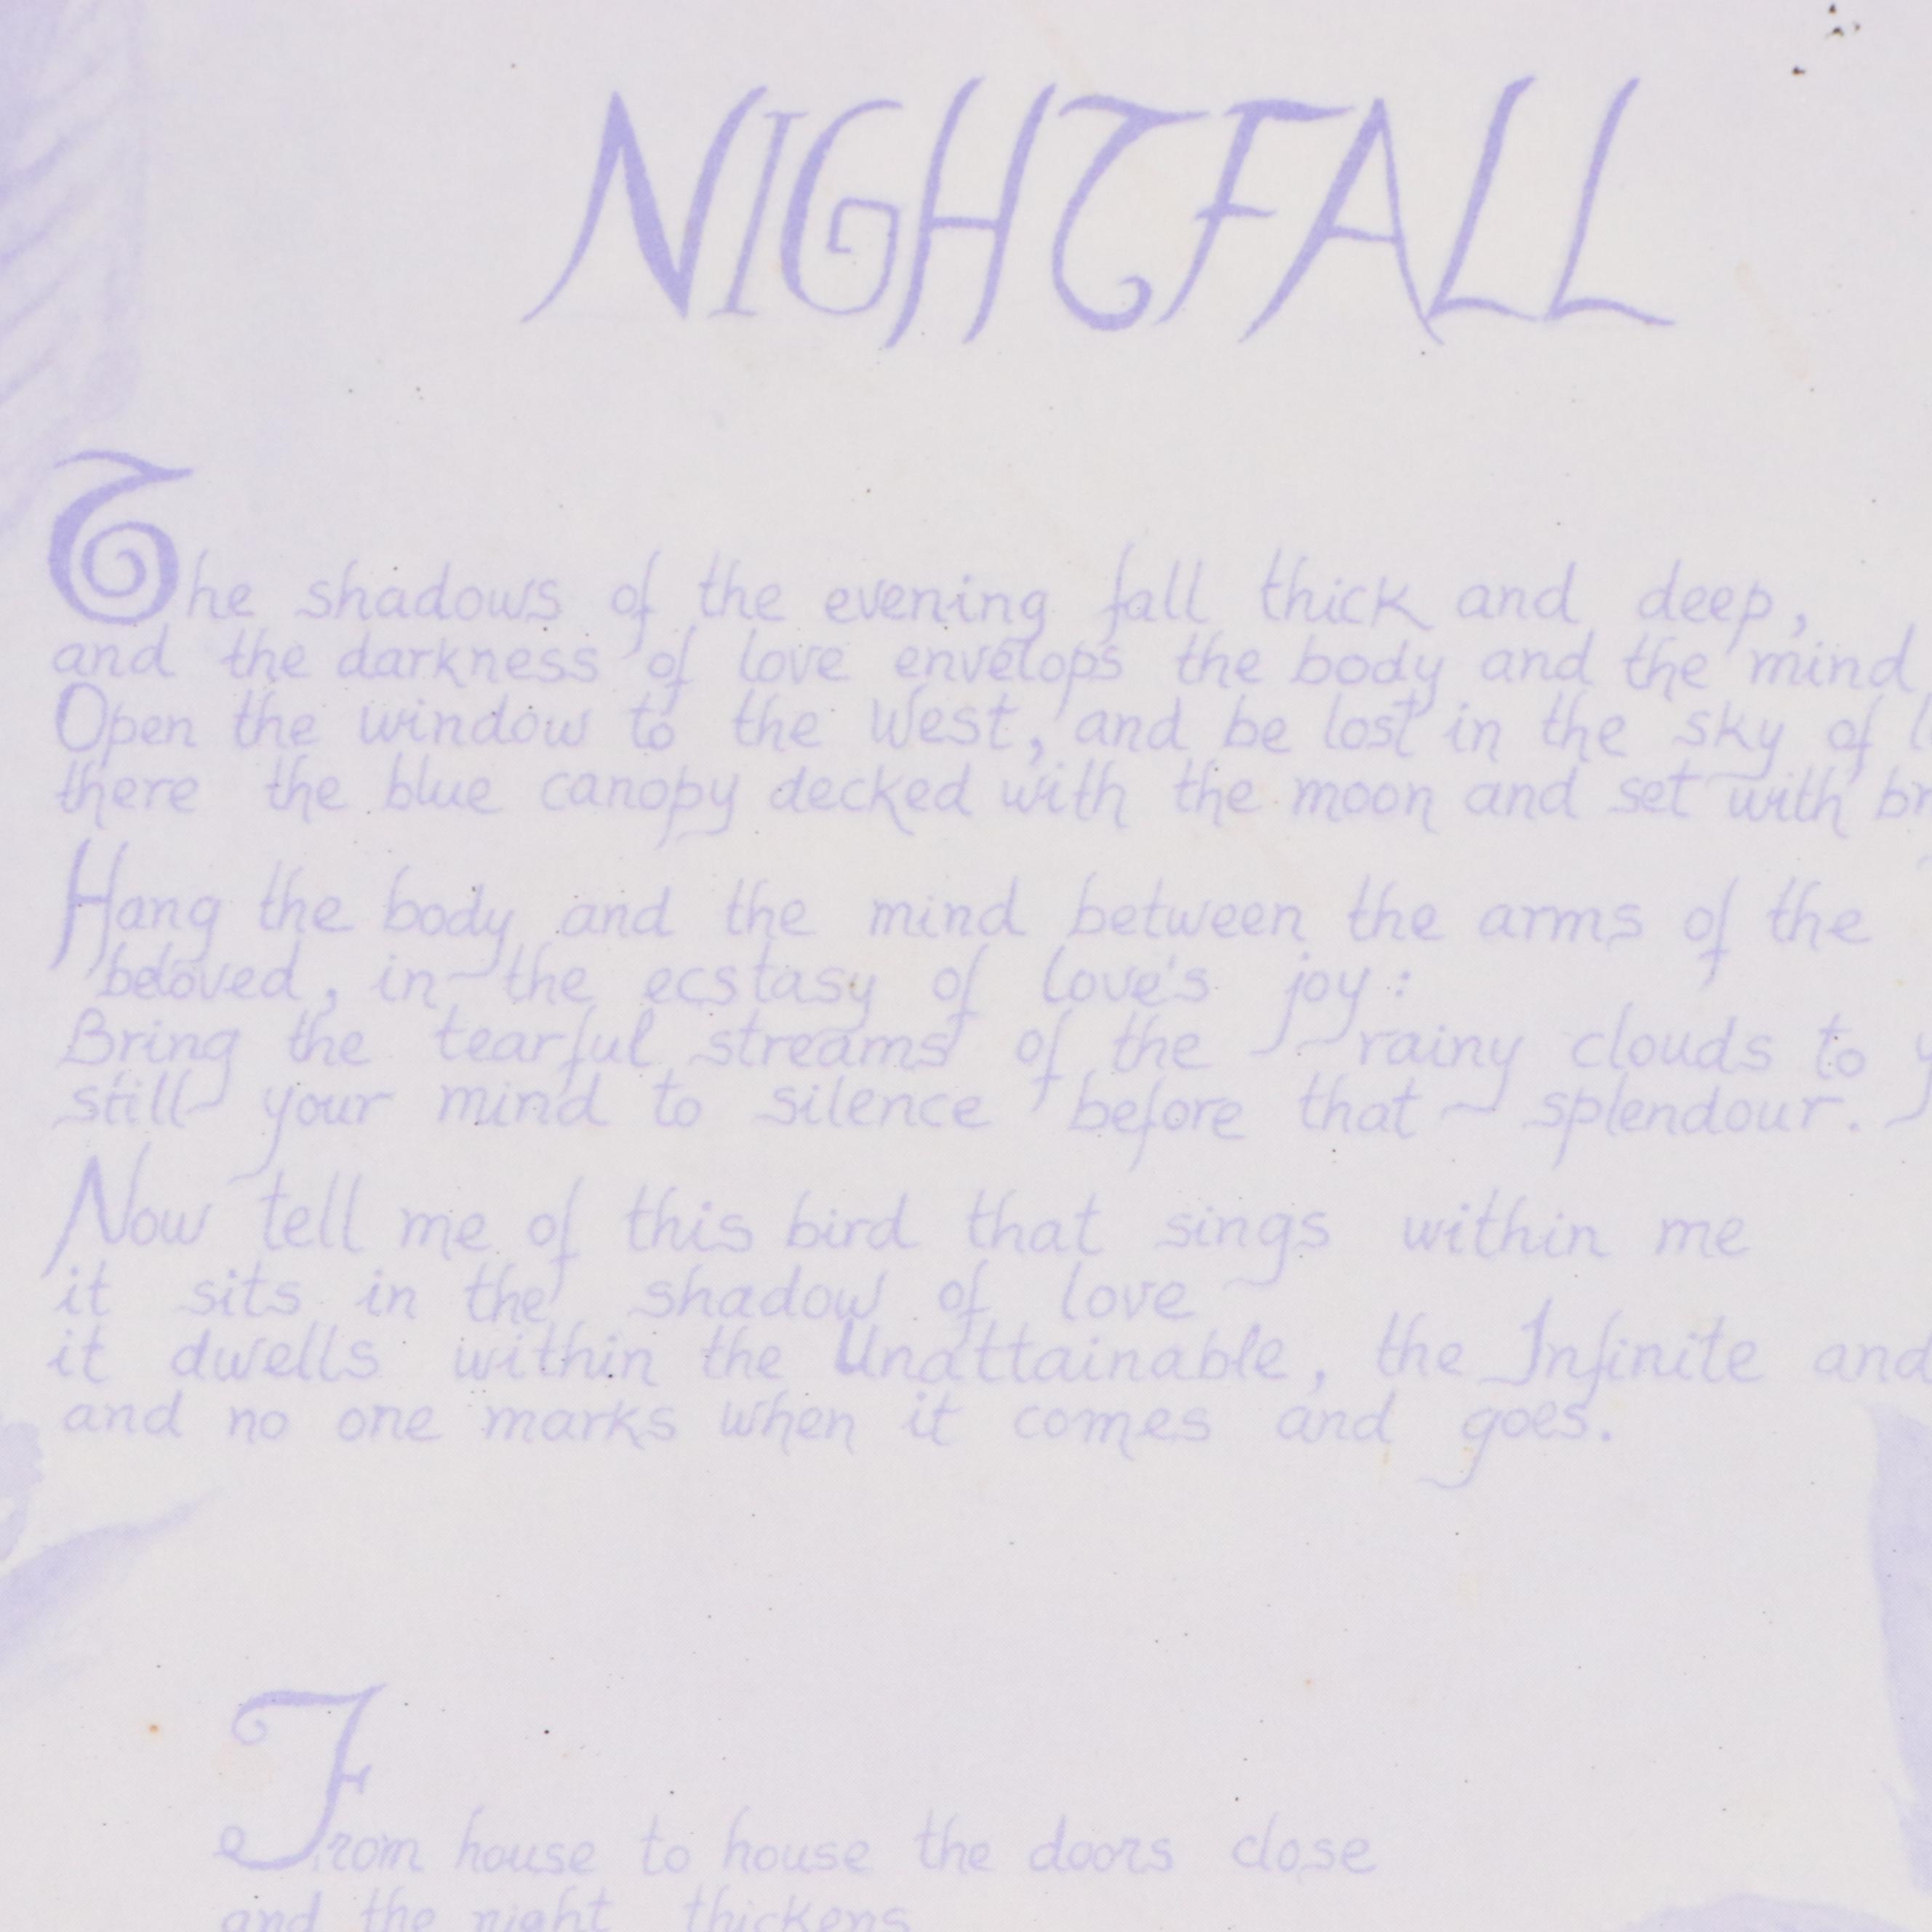 NIGHTFALL
The shadows of the evening fall thick and deep,
and the darkness of love envelops the body and the mind
Open the window to the West, and be lost in the sky of
there the blue canopy decked with the moon and set with
Hang the body and the mind between the arms of the
beloved, in the ecstasy of love's joy:
Bring the tearful streams of the rainy clouds to
still your mind to silence before that splendour.
Now tell me of this bird that sings within me
it sits in the shadow of love
it dwells within the Unattainable, the Infinite and
and no one marks when it comes and goes.
From house to house the doors close
and the night thickens